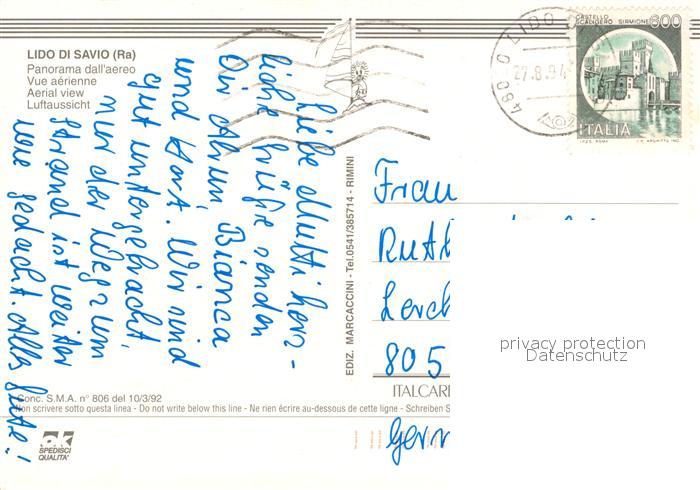 LIDO DI SAVIO (Ra)
Panorama dall'aereo
Vue aérienne
Aerial view
Luftaussicht
Liebe Mutti herz-
liche Grüße senden
Dir Bianca
und Horst. Wir sind
gut untergebracht,
nur der Weg zum
Strand ist weiter
wie gedacht. Alles Gute!
EDIZ. MARCACCINI - Tel.0541/385714 - RIMINI
48020 LIDO
27.8.94
CASTELLO
SCALIGERO SIRMIONE
800
ITALIA
I.P.Z.S. ROMA
Frau
Ruth
Lerch
805
ITALCAR
Germ
privacy protection
Datenschutz
Conc. S.M.A. n° 806 del 10/3/92
Non scrivere sotto questa linea - Do not write below this line - Ne rien écrire au-dessous de cette ligne - Schreiben S
ok
SPEDISCI
QUALITA'